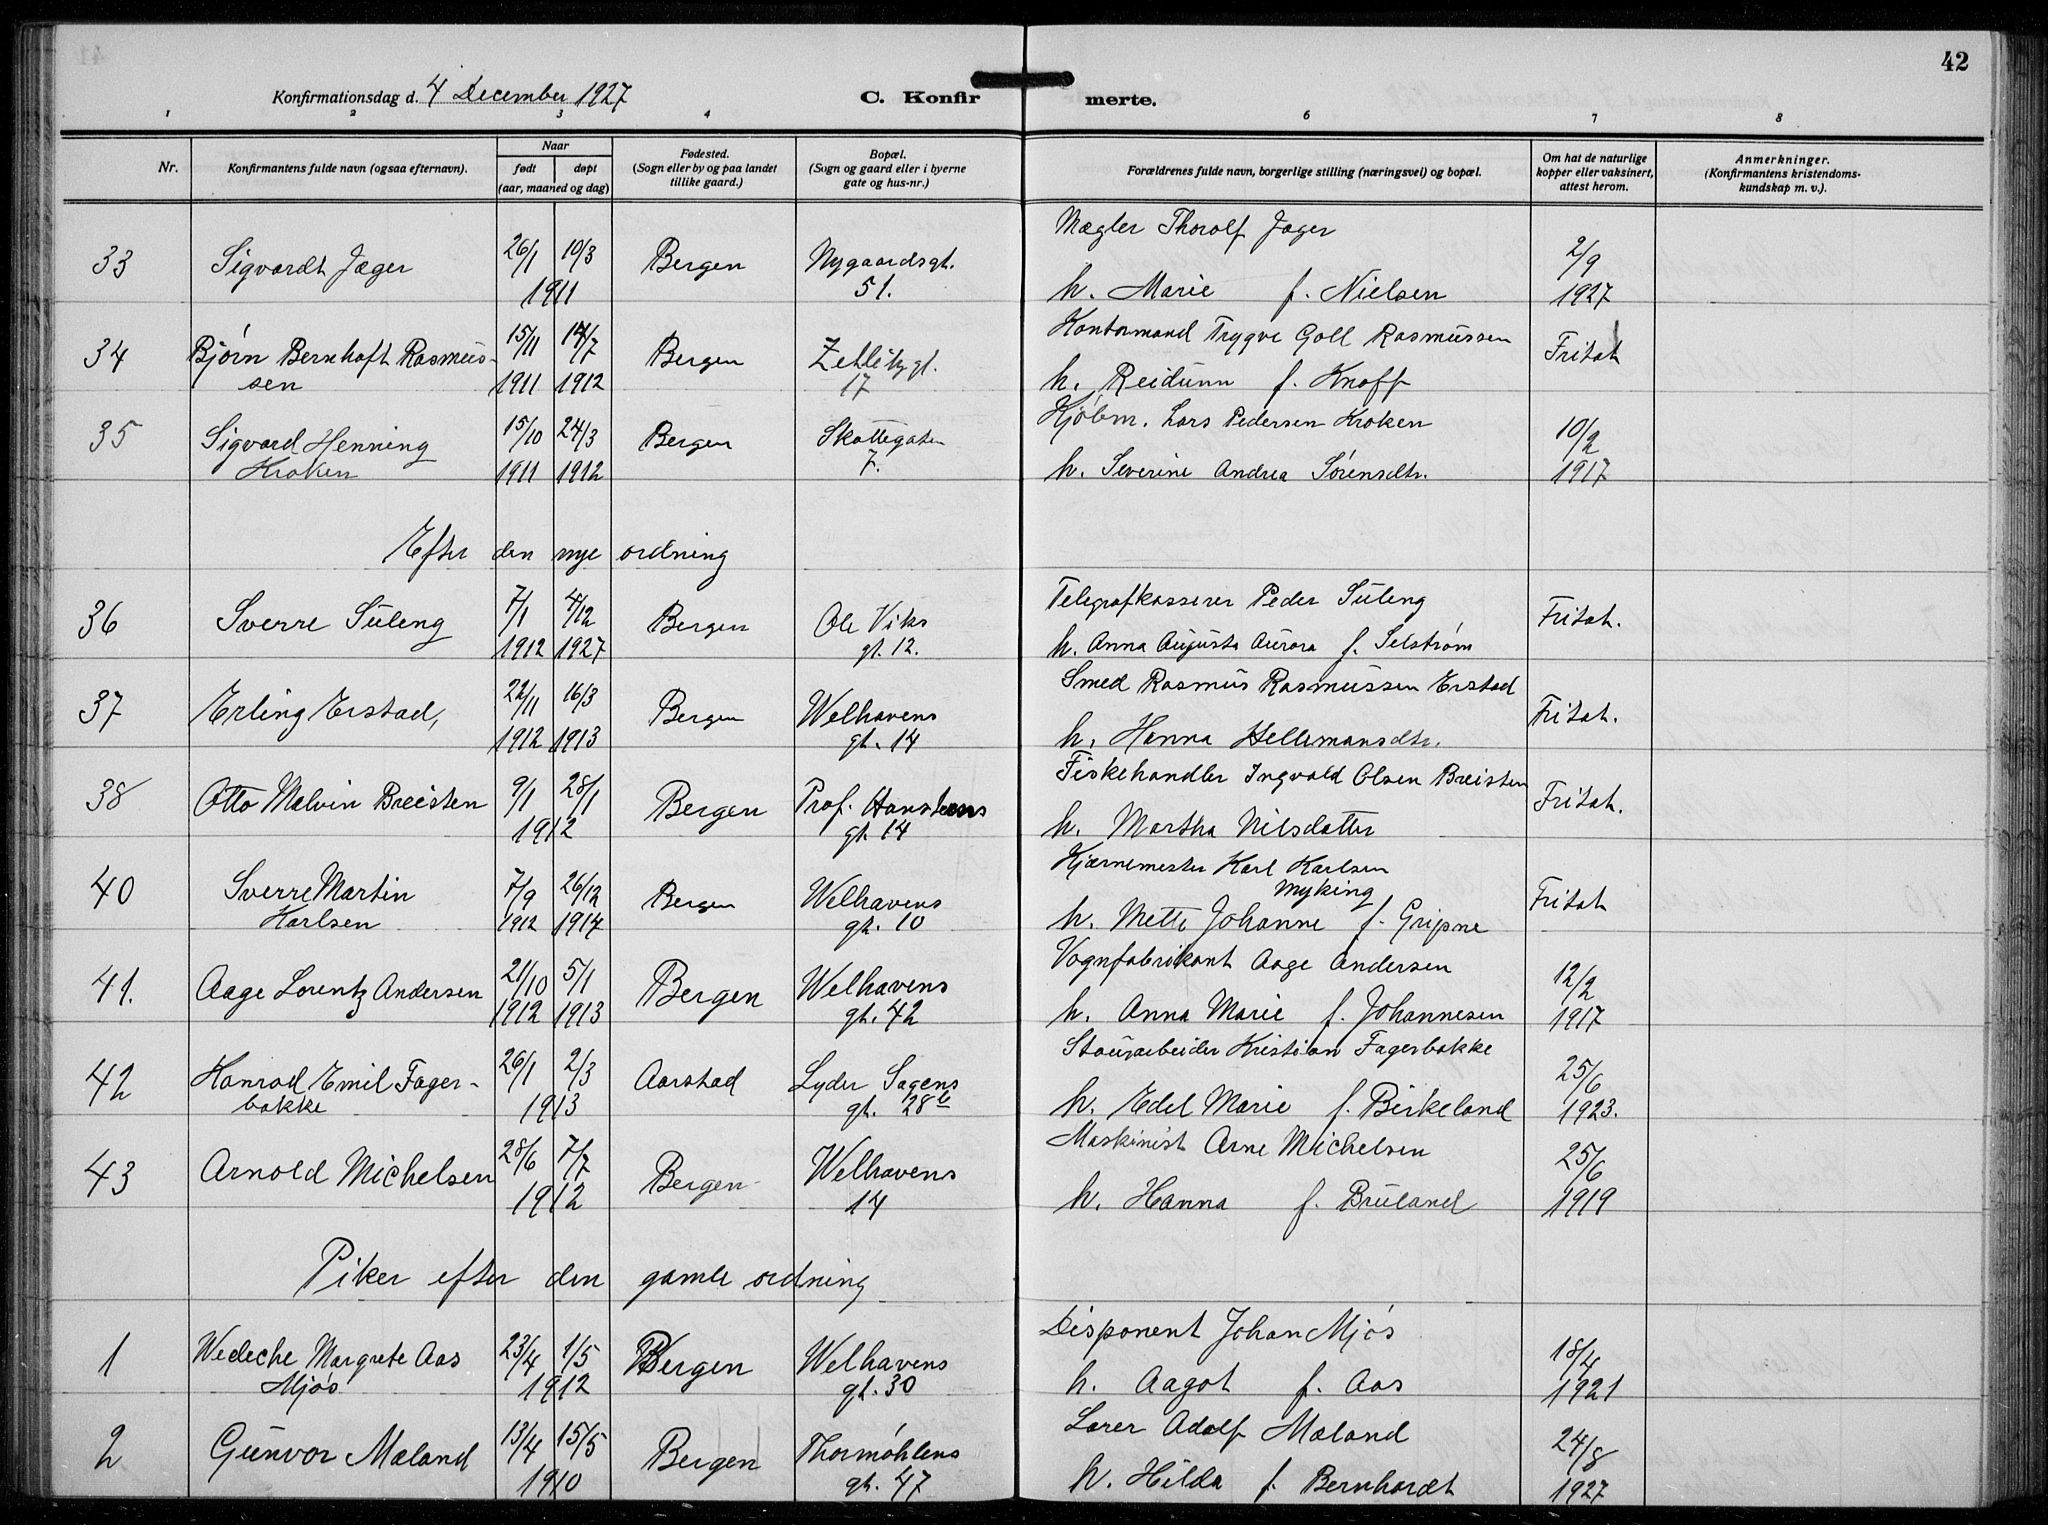 42
Konfirmationsdag d. 4 December 1927
C. Konfir merte.
1 2 3 4 5 6 7 8
Nr.
Konfirmantens fulde navn (ogsaa efternavn).
Naar
født døpt
(aar, maaned og dag)
Fødested.
(Sogn eller by og paa landet
tillike gaard.)
Bopæl.
(Sogn og gaard eller i byerne
gate og hus-nr.)
Forældrenes fulde navn, borgerlige stilling (næringsvei) og bopæl.
Om hat de naturlige
kopper eller vaksinert,
attest herom.
Anmerkninger.
(Konfirmantens kristendoms-
kundskap m. v.).
33 Sigvardt Jæger 26/1 10/3 1911 Bergen Nygaardsgt. 51.
Mægler Thorolf Jæger
h. Marie f. Nielsen
2/9 1927
34 Bjørn Bernhoft Rasmus-
sen
15/11 1911 14/7 1912 Bergen Zetlitzgt. 17
Kontormand Trygve Goll Rasmussen
h. Reidunn f. Knoff
Fritat
35 Sigvard Henning
Kroken
15/10 1911 24/3 1912 Bergen Skottegaten 7.
Kjøbm. Lars Pedersen Kroken
h. Severine Andrea Sørensdtr.
10/2 1917
Efter den nye ordning
36 Sverre Süleng 7/1 1912 4/12 1927 Bergen Ole Viks gt. 12.
Telegrafkasserer Peder Süleng
h. Anna Augusta Aurora f. Selstrøm
Fritat.
37 Erling Erstad, 22/11 1912 16/3 1913 Bergen Welhavens gt. 14
Smed Rasmus Rasmussen Erstad
h. Hanna Hellemansdtr.
Fritat.
38 Otto Malvin Breisten 9/1 28/1 1912 Bergen Prof. Hansteens gt. 14
Fiskehandler Ingvald Olsen Breisten
h. Martha Nilsdatter
Fritat.
40 Sverre Martin
Karlsen
7/9 1912 26/12 1917 Bergen Welhavens gt. 10
Kjærnemester Karl Karlsen
Myking
h. Mette Johanne f. Gripne
Fritat
41. Aage Lorentz Andersen 21/10 1912 5/1 1913 Bergen Welhavens gt. 42
Vognfabrikant Aage Andersen
h. Anna Marie f. Johannesen
12/2 1917
42 Konrad Emil Fager-
bakke
26/1 2/3 1913 Aarstad Lyder Sagens gt. 28b
Stourarbeider Kristian Fagerbakke
h. Edel Marie f. Birkeland
25/6 1923.
43 Arnold Michelsen 28/6 7/7 1912 Bergen Welhavens 14
Maskinist Arne Michelsen
h. Hanna f. Bruland
25/6 1919
Piker efter den gamle ordning
1 Wedeche Margrete Aas
Mjøs
23/4 1/5 1912 Bergen Welhavens gt. 30
Disponent Johan Mjøs
h. Aagot f. Aas
18/4 1921
2 Gunvor Mæland 13/4 15/5 1910 Bergen Thormøhlens gt. 47
Lærer Adolf Mæland
h. Hilda f. Bernhardt
24/8 1927